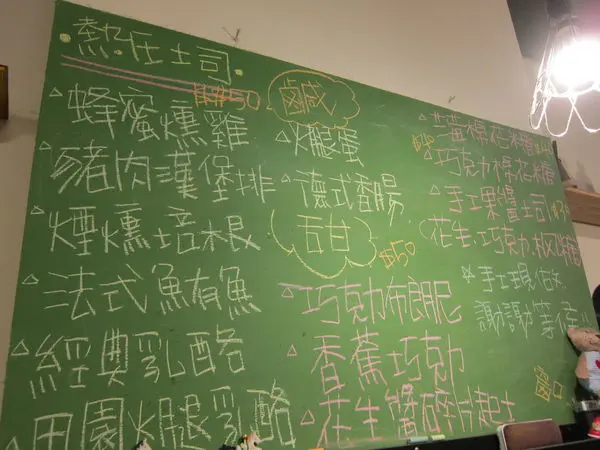 熱压土司
鹹
蜂蜜燻雞
豬肉漢堡排
煙燻培根
法式鮪魚
經典乳酪
田園火腿乳酪
火腿蛋
德式香腸
甜 $50
巧克力布朗尼
香蕉巧克力
花生醬碎片起士
巧克力棉花糖
手工果醬土司
花生.巧克力.
手工現做
謝謝等候